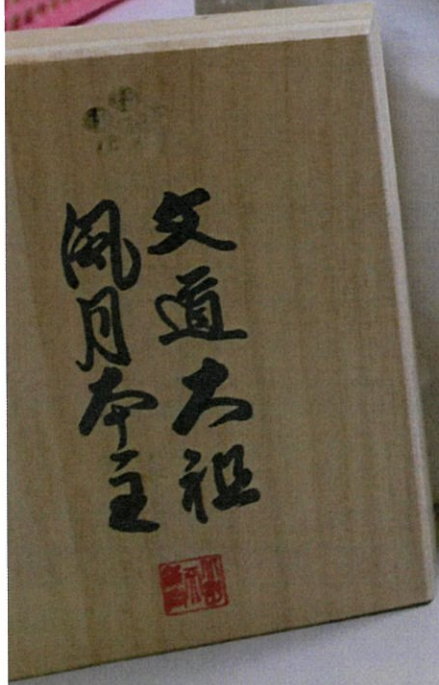 文道大祖
風月本主